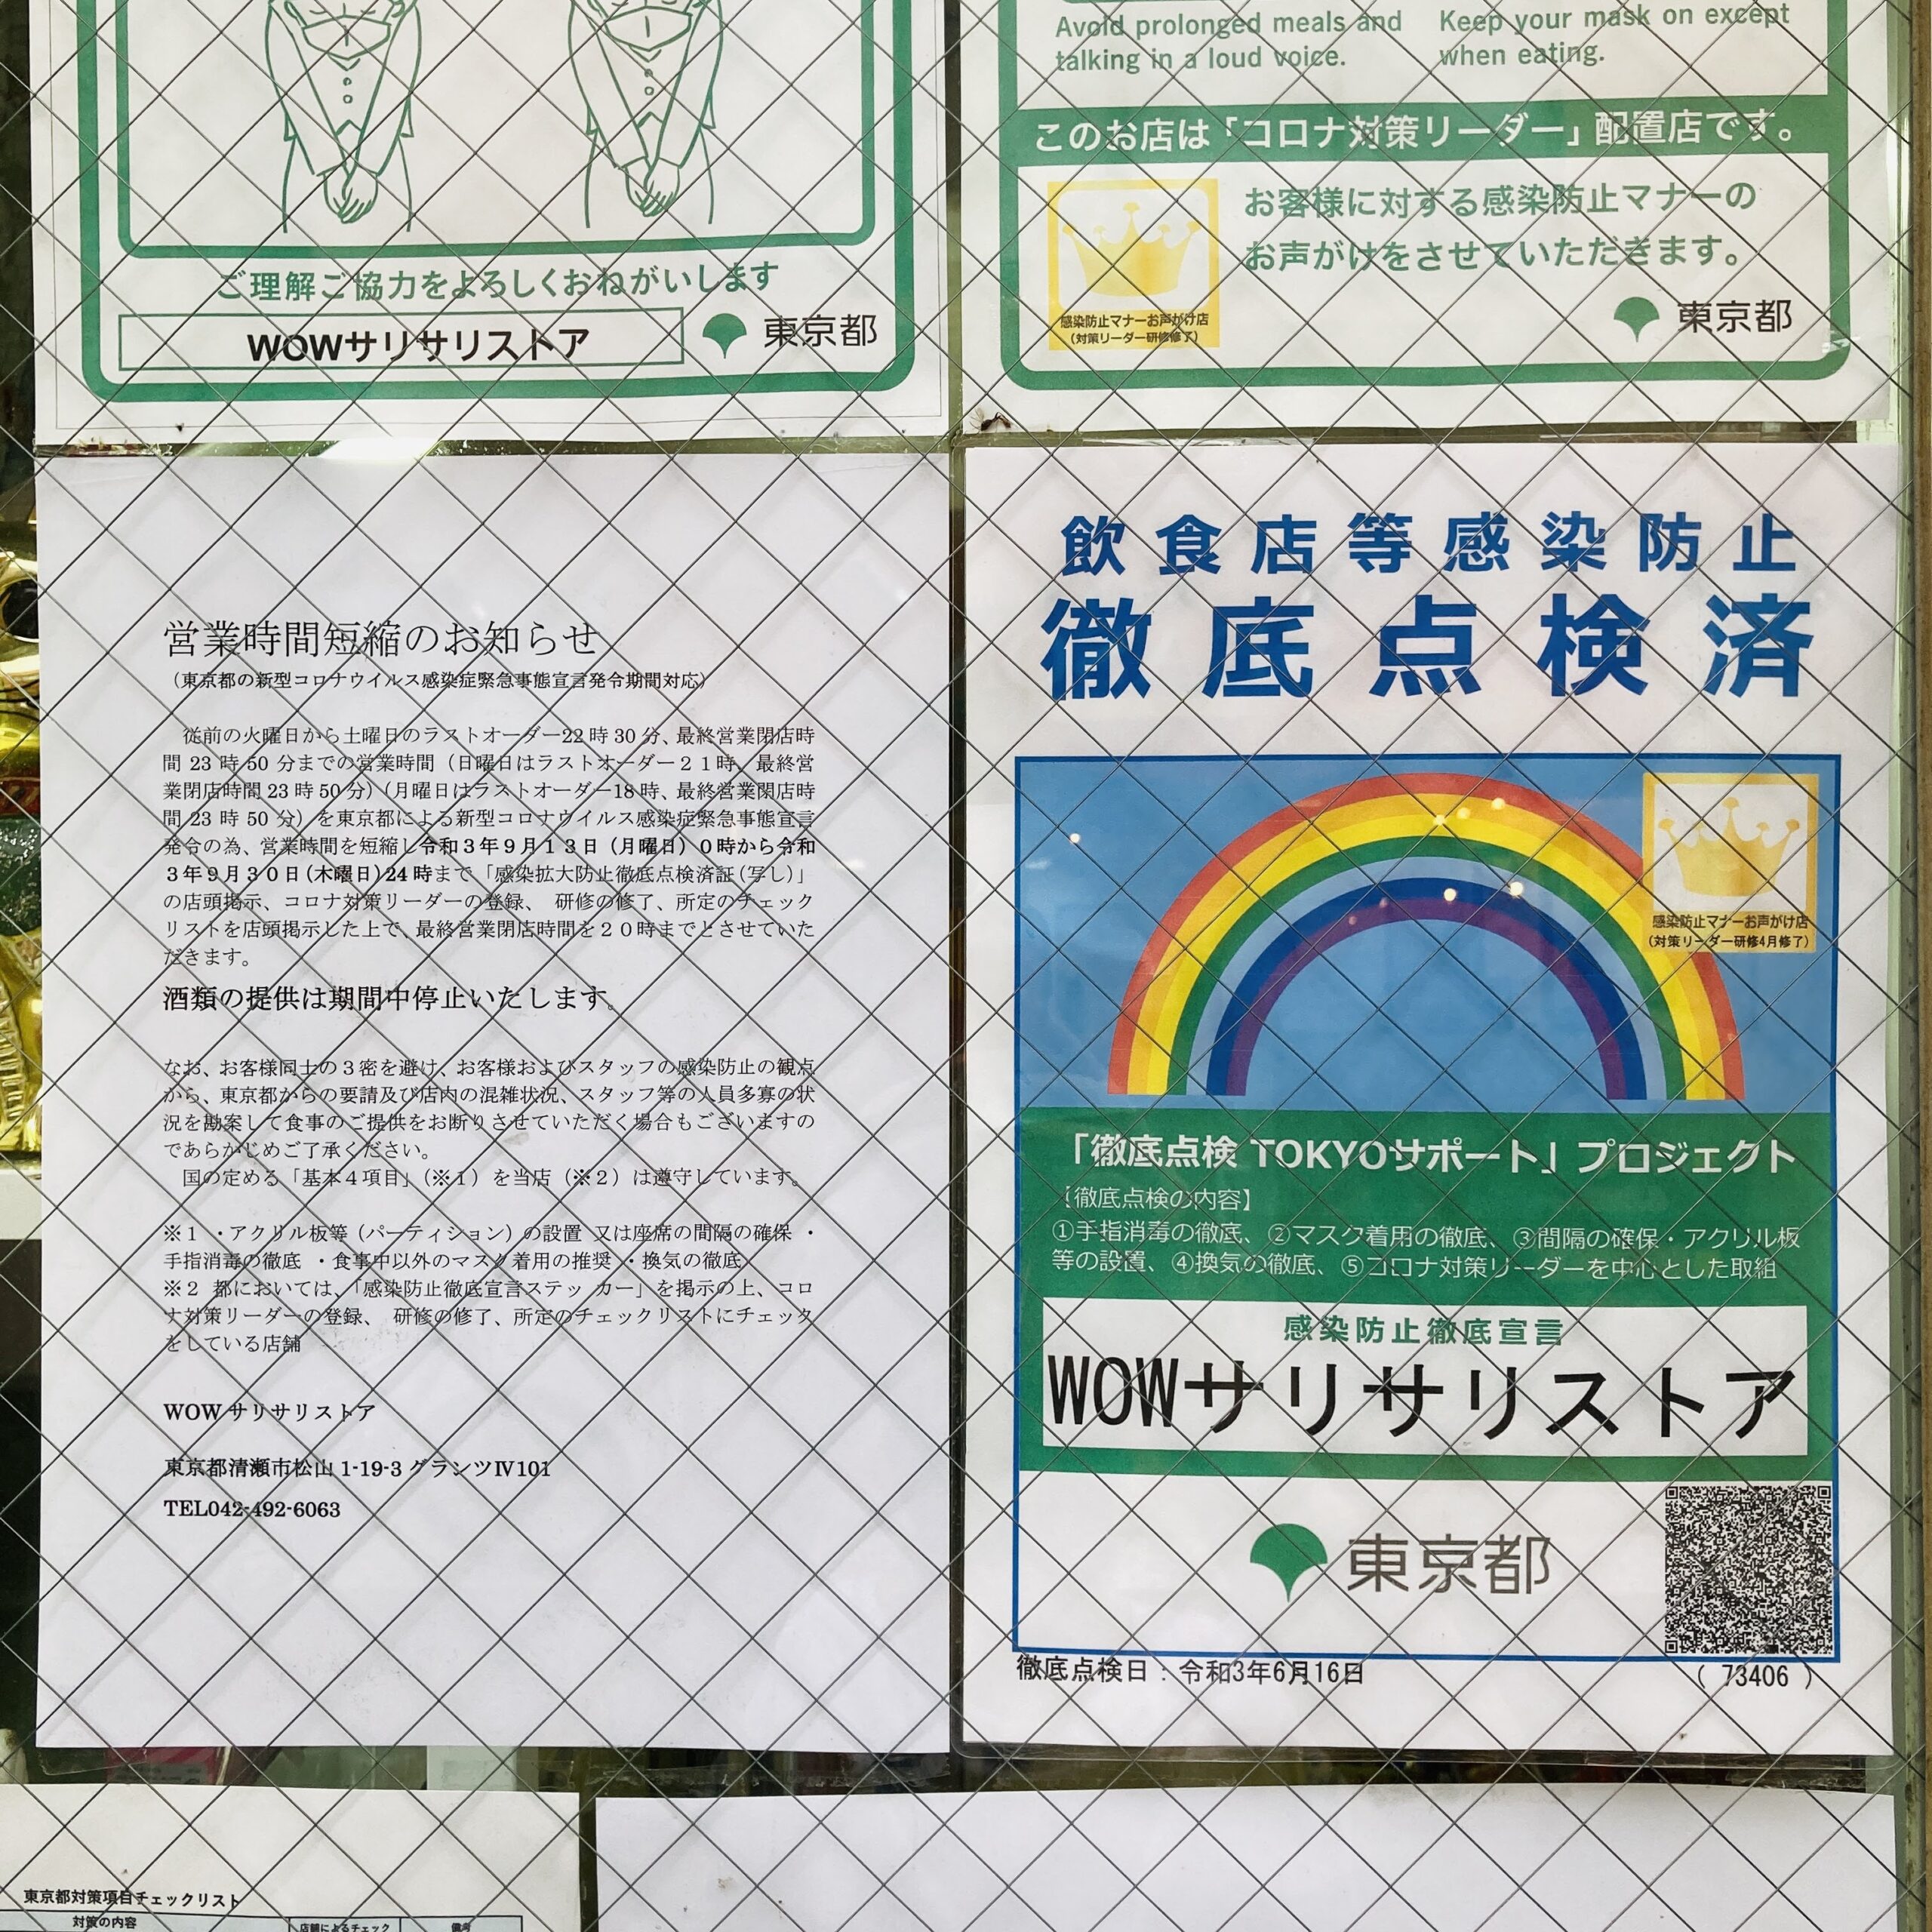 ご理解ご協力をよろしくおねがいします
WOWサリサリストア
東京都
Avoid prolonged meals and
talking in a loud voice.
Keep your mask on except
when eating.
このお店は「コロナ対策リーダー」配置店です。
お客様に対する感染防止マナーの
お声がけをさせていただきます。
感染防止マナーお声がけ店
(対策リーダー研修修了)
東京都
営業時間短縮のお知らせ
（東京都の新型コロナウイルス感染症緊急事態宣言発令期間対応）
従前の火曜日から土曜日のラストオーダー22時30分、最終営業閉店時
間 23 時 50 分までの営業時間（日曜日はラストオーダー２１時、最終営
業閉店時間23時50分）（月曜日はラストオーダー18時、最終営業閉店時
間 23 時 50 分）を東京都による新型コロナウイルス感染症緊急事態宣言
発令の為、営業時間を短縮し令和３年９月１３日（月曜日）０時から令和
３年９月３０日(木曜日)24時まで「感染拡大防止徹底点検済証（写し）」
の店頭掲示、コロナ対策リーダーの登録、 研修の修了、所定のチェック
リストを店頭掲示した上で、最終営業閉店時間を２０時までとさせていた
だきます。
酒類の提供は期間中停止いたします。
なお、お客様同士の３密を避け、お客様およびスタッフの感染防止の観点
から、東京都からの要請及び店内の混雑状況、スタッフ等の人員多寡の状
況を勘案して食事のご提供をお断りさせていただく場合もございますの
であらかじめご了承ください。
国の定める「基本４項目」（※１）を当店（※２）は遵守しています。
※１ ・アクリル板等（パーティション）の設置 又は座席の間隔の確保 ・
手指消毒の徹底 ・食事中以外のマスク着用の推奨 ・換気の徹底
※２ 都においては、「感染防止徹底宣言ステッ カー」を掲示の上、コロ
ナ対策リーダーの登録、 研修の修了、所定のチェックリストにチェック
をしている店舗
WOWサリサリストア
東京都清瀬市松山 1-19-3 グランツⅣ101
TEL042-492-6063
飲食店等感染防止
徹底点検済
感染防止マナーお声がけ店
(対策リーダー研修4月修了)
「徹底点検 TOKYOサポート」プロジェクト
【徹底点検の内容】
①手指消毒の徹底、②マスク着用の徹底、③間隔の確保・アクリル板
等の設置、④換気の徹底、⑤コロナ対策リーダーを中心とした取組
感染防止徹底宣言
WOWサリサリストア
東京都
徹底点検日：令和3年6月16日
( 73406 )
東京都対策項目チェックリスト
対策の内容
店舗によるチェック
備考